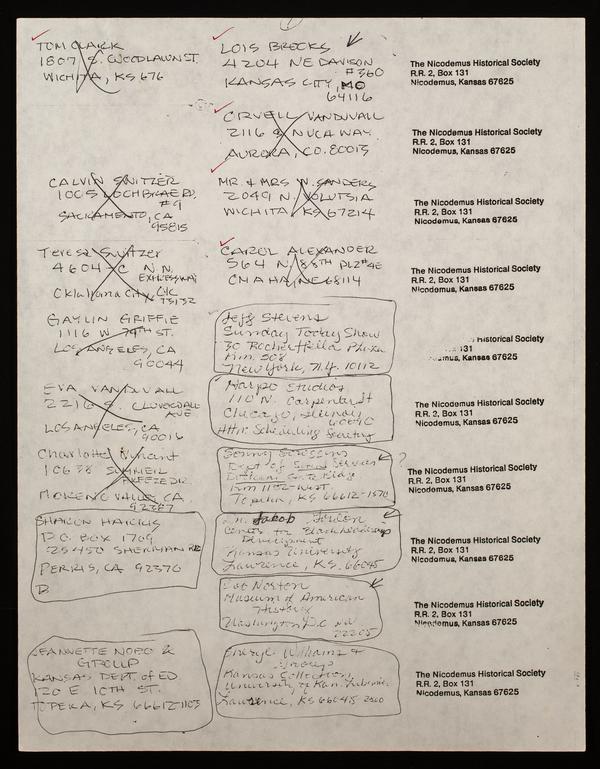 TOM CLARK
1807 S. WOODLAWN ST.
WICHITA, KS 676
CALVIN SWITZER
1005 LOCHBRAE RD.
#9
SACRAMENTO, CA
95815
Teresa Switzer
4604-C N.N.
EXPRESSWAY
Oklahoma City, OK
73132
GAYLIN GRIFFIE
1116 W 79TH ST.
LOS ANGELES, CA
90044
EVA VANDUVALL
2216 S. CLOVERDALE
AVE
LOS ANGELES, CA
90016
Charlotte
10638 SUMMER
BREEZE DR.
MORENO VALLEY, CA.
92387
SHARON HARRIS
P.O. BOX 1709
25450 SHERMAN RD
PERRIS, CA 92370
D.
JEANNETTE NOBO &
GROUP
KANSAS DEPT. of ED
120 E 10TH ST.
TOPEKA, KS 66612-1103
1
LOIS BROOKS
4204 NE DAVISON
#360
KANSAS CITY, MO
64116
ORVELL VANDUVALL
2116 S NUCLA WAY.
AURORA, CO. 80013
MR. & MRS W. SANDERS
2049 N. VOLUTSIA
WICHITA, KS 67214
CAROL ALEXANDER
564 N. 88th PLZ #4E
OMAHA, NE 68114
Jeff Stevens
Sunday Today Show
30 Rockerfella
Rm. 508
New York, N.Y. 10112
Harpo Studios
110 N. Carpenter St
Chicago,
Attn: Scheduling Secretary
?
Dept of Services
Topeka, KS 66612-1570
Jacob
Center for Black
Development
Kansas University
Lawrence, KS. 66045
Norton
Museum of American
History
Washington D.C.
Williams &
Group
Kansas Collection
University of Kan.
Lawrence, KS 66045
The Nicodemus Historical Society
R.R. 2, Box 131
Nicodemus, Kansas 67625
The Nicodemus Historical Society
R.R. 2, Box 131
Nicodemus, Kansas 67625
The Nicodemus Historical Society
R.R. 2, Box 131
Nicodemus, Kansas 67625
The Nicodemus Historical Society
R.R. 2, Box 131
Nicodemus, Kansas 67625
Historical Society
131
Kansas 67625
The Nicodemus Historical Society
R.R. 2, Box 131
Nicodemus, Kansas 67625
The Nicodemus Historical Society
R.R. 2, Box 131
Nicodemus, Kansas 67625
The Nicodemus Historical Society
R.R. 2, Box 131
Nicodemus, Kansas 67625
The Nicodemus Historical Society
R.R. 2, Box 131
Nicodemus, Kansas 67625
The Nicodemus Historical Society
R.R. 2, Box 131
Nicodemus, Kansas 67625